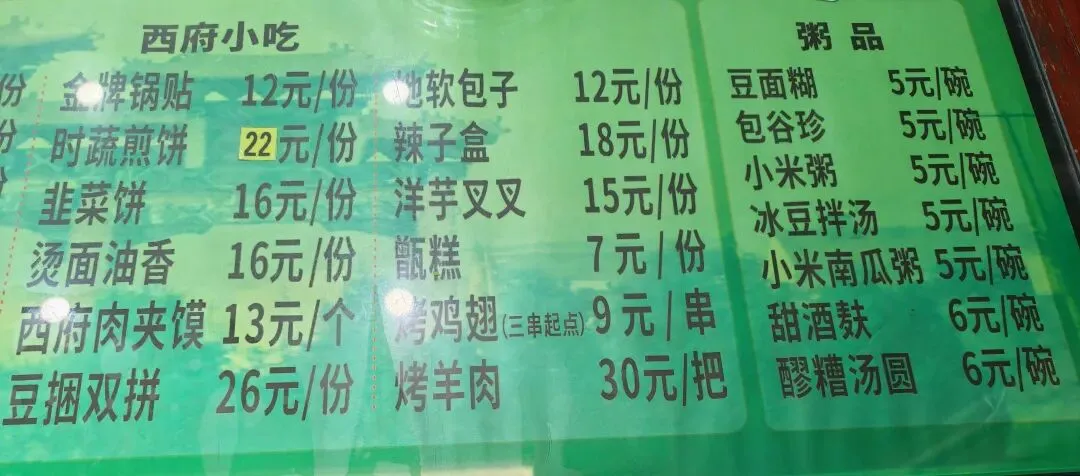 西府小吃
金牌锅贴 12元/份
时蔬煎饼 22元/份
韭菜饼 16元/份
烫面油香 16元/份
西府肉夹馍 13元/个
豆捆双拼 26元/份
地软包子 12元/份
辣子盒 18元/份
洋芋叉叉 15元/份
甑糕 7元/份
烤鸡翅(三串起点) 9元/串
烤羊肉 30元/把
粥品
豆面糊 5元/碗
包谷珍 5元/碗
小米粥 5元/碗
冰豆拌汤 5元/碗
小米南瓜粥 5元/碗
甜酒麸 6元/碗
醪糟汤圆 6元/碗